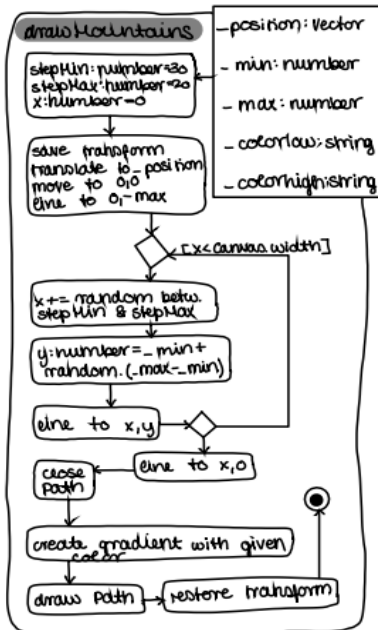 drawMountains
_position: vector
_min: number
_max: number
_colorlow: string
_colorhigh: string
stepMin: number=30
stepMax: number=20
x: number=0
save transform
translate to _position
move to 0,0
line to 0,-max
[x<canvas.width]
x += random betw.
stepMin & stepMax
y: number=_min+
random.(_max-_min)
line to x,y
line to x,0
close
path
create gradient with given
color
draw path
restore transform